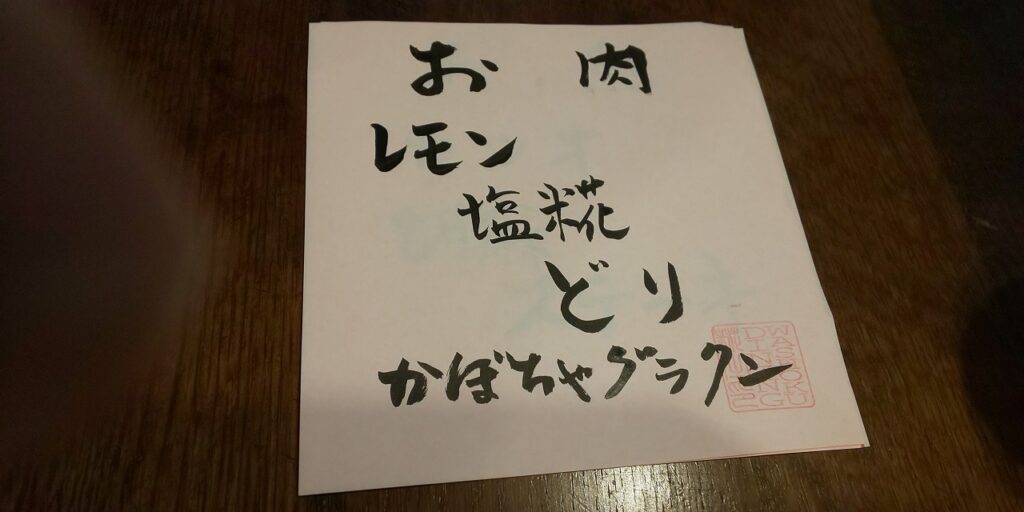 お 肉
レモン
塩糀
どり
かぼちゃグラタン
WASHOKU
DINING